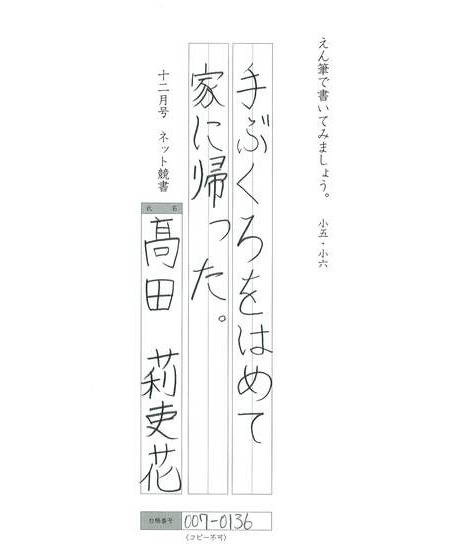 えん筆で書いてみましょう。 小五・小六
手ぶくろをはめて
家に帰った。
十二月号 ネット競書
氏名
髙田 莉吏花
台帳番号 007-0136
(コピー不可)